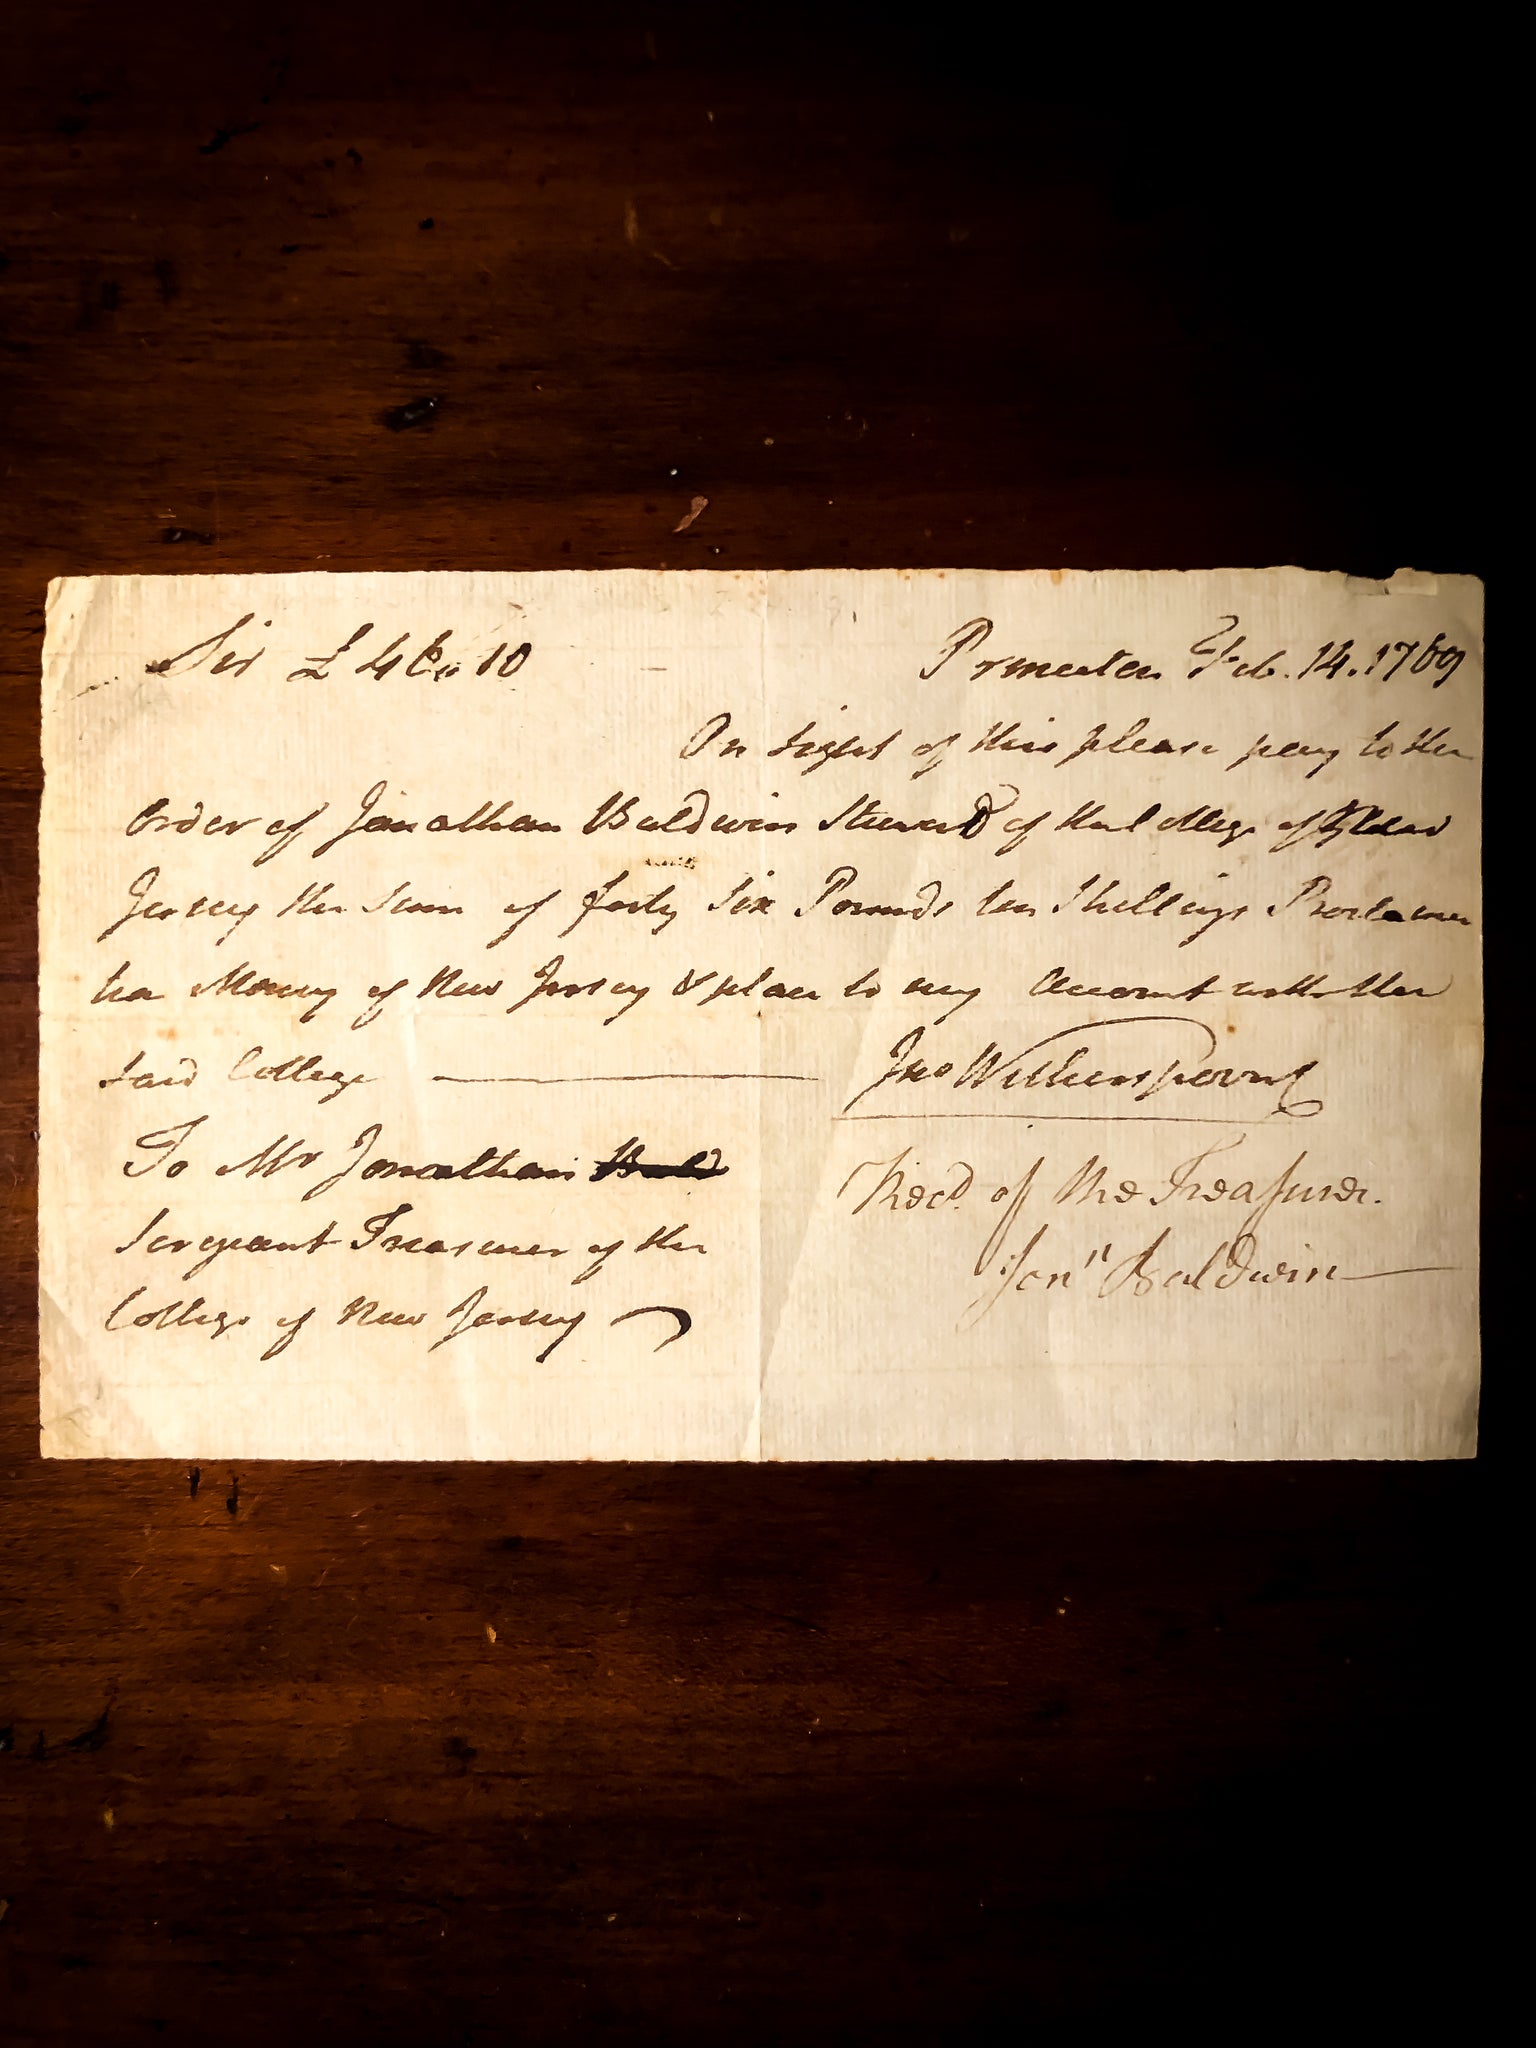 Sir £ 46,, 10 Princeton Feb. 14. 1769
On sight of this please pay to the
Order of Jonathan Baldwin Steward of the College of New
Jersey the Sum of forty six Pounds ten Shillings Proclama
tion Money of New Jersey & place to my Account with the
said College
Jno Witherspoon
To Mr Jonathan Bald
Sergeant Treasurer of the
College of New Jersey
Recd. of the Treasurer.
Jonn Baldwin